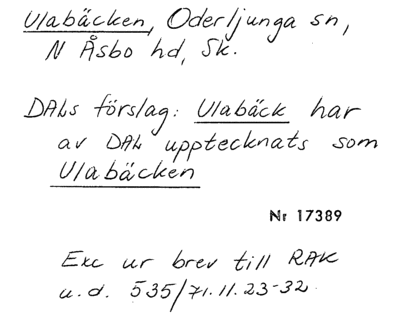 Ulabäcken, Oderljunga sn,
N Åsbo hd, Sk.
DALs förslag: Ulabäck har
av DAL upptecknats som
Ulabäcken
Nr 17389
Exc ur brev till RAK
u.d. 535/71.11.23-32